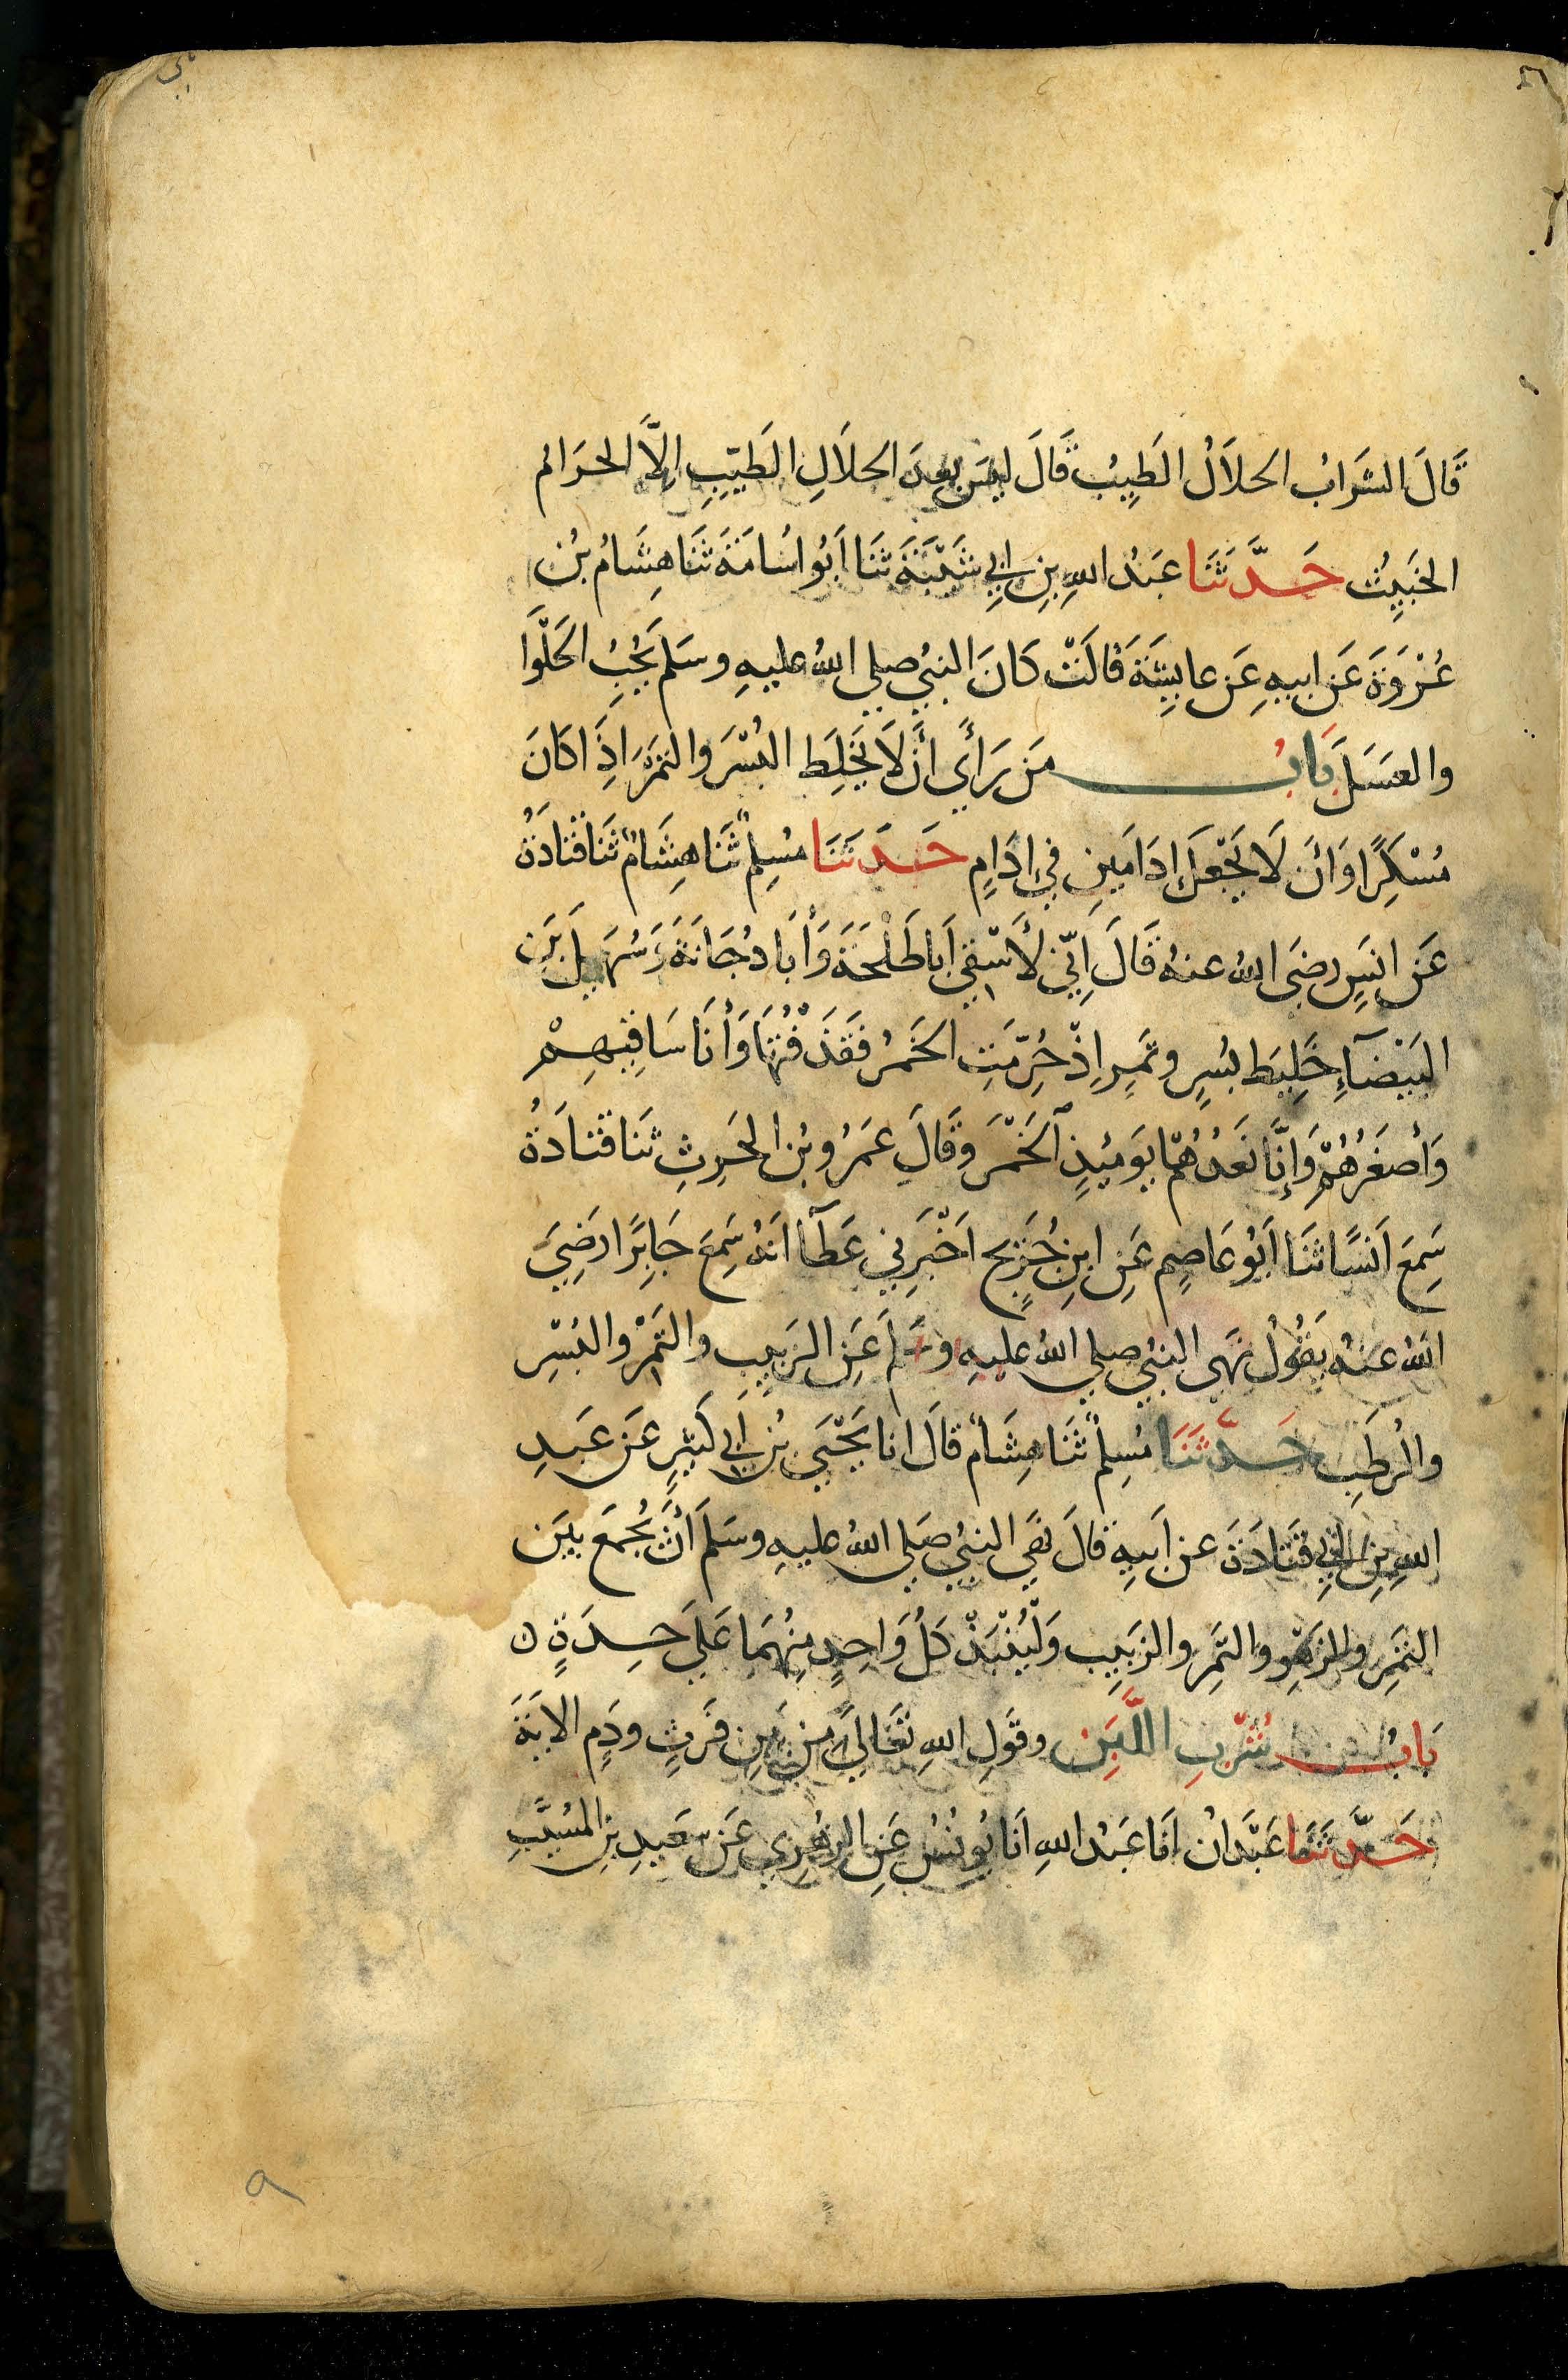 قَالَ الشَرَابُ الحلاَلُ الطَيِبُ قَالَ ليسَ بعدَ الحلاَلِ الطَيّبِ اِلاَّ الحرَام
الخَبِيثُ حَدَّثَنَا عَبدُ اللهِ بنِ ابِي شَيْبَةَ ثنَا اَبُو اسُامَةَ ثنَا هِشَامُ بنُ
عُرْوَةَ عَن ابيهِ عَن عايشَةَ قالَتْ كَانَ النبيُ صلي اللهُ عليهِ وسَلمَ يُحِبُ الحَلْوَا
والعسَلَ بَابُ مَن رَأَي أَن لاَ يَخلِطَ البُسْرَ والتمْرَ اذَِا كانَ
مُسْكِرًا وَانَ لاَ يَجْعَلَ اِدَامَينِ في اِدَامٍ حَدَثَنَا مُسِلِمٌ ثَنَا هِشَامٌ ثَنَا قَتَادَةُ
عَن انسٍ رضَى اللهُ عنهُ قَالَ اِنّي لأَسْقي اَبَا طَلْحَةَ وَأَبَا دُجَانَةَ وَسُهَيلَ بنَ
البَيْضَآءِ خَلِيطَ بُسرٍ وتَمرٍ اِذْ حُرّمَتِ الخَمرُ فقَذَفْتُهَا وَأَنَا سَاقيْهِمْ
وَأَصْغَرُهُمْ وَإِنَّا نَعُدُهَا يَوميُذٍ الخَمْرَ وقَالَ عَمَرُو بنُ الحَرِثِ ثنَا قَتادَةُ
سَمِعَ اَنَسًا ثنَا اَبُو عَاصِمٍ عَنِ ابنِ جُرَيجٍ اَخْبَرَنِي عَطَآ اَنهُ سَمِعَ جَابِرًا رَضِيَ
اللهُ عنهُ يَقُولُ نهَى النبيُ صلي اللهُ عليهِ وسَلمَ عَنِ الزَبِيبِ والتَمْرِ والبُسْرِ
والرُطَبِ حَدَّثَنَا مُسِلِمٌ ثَنَا هِشَامٌ قالَ انا يَحْيَي بنُ اَبي كَثيْرٍ عَن عَبدِ
اللهِ بنِ ابِي قَتَادَةَ عن اَبيهِ قالَ نهَي النبيُ صَلي اللهُ عليهِ وسَلمَ أَنْ يُجْمَعَ بينَ
التَمرِ والزَهْوِ والتَمرِ والزَبيِبِ وَلْيُنْبَذْ كلُ وَاحِدٍ مِنهُمَا عَلَي حِدَةٍ ن
بَابُ شُرْبِ اللَّبَنِ وقَولِ اللهِ تَعَالَي مِن بَينِ فَرثٍ ودَمٍ الايَةَ
حَدَّثَنَا عَبْدَانُ اَنَا عَبدُ اللهِ اَنَا يُونُسُ عَنِ الزهْرِي عَن سَعيدِ بنِ المسَيَّبِ
٩